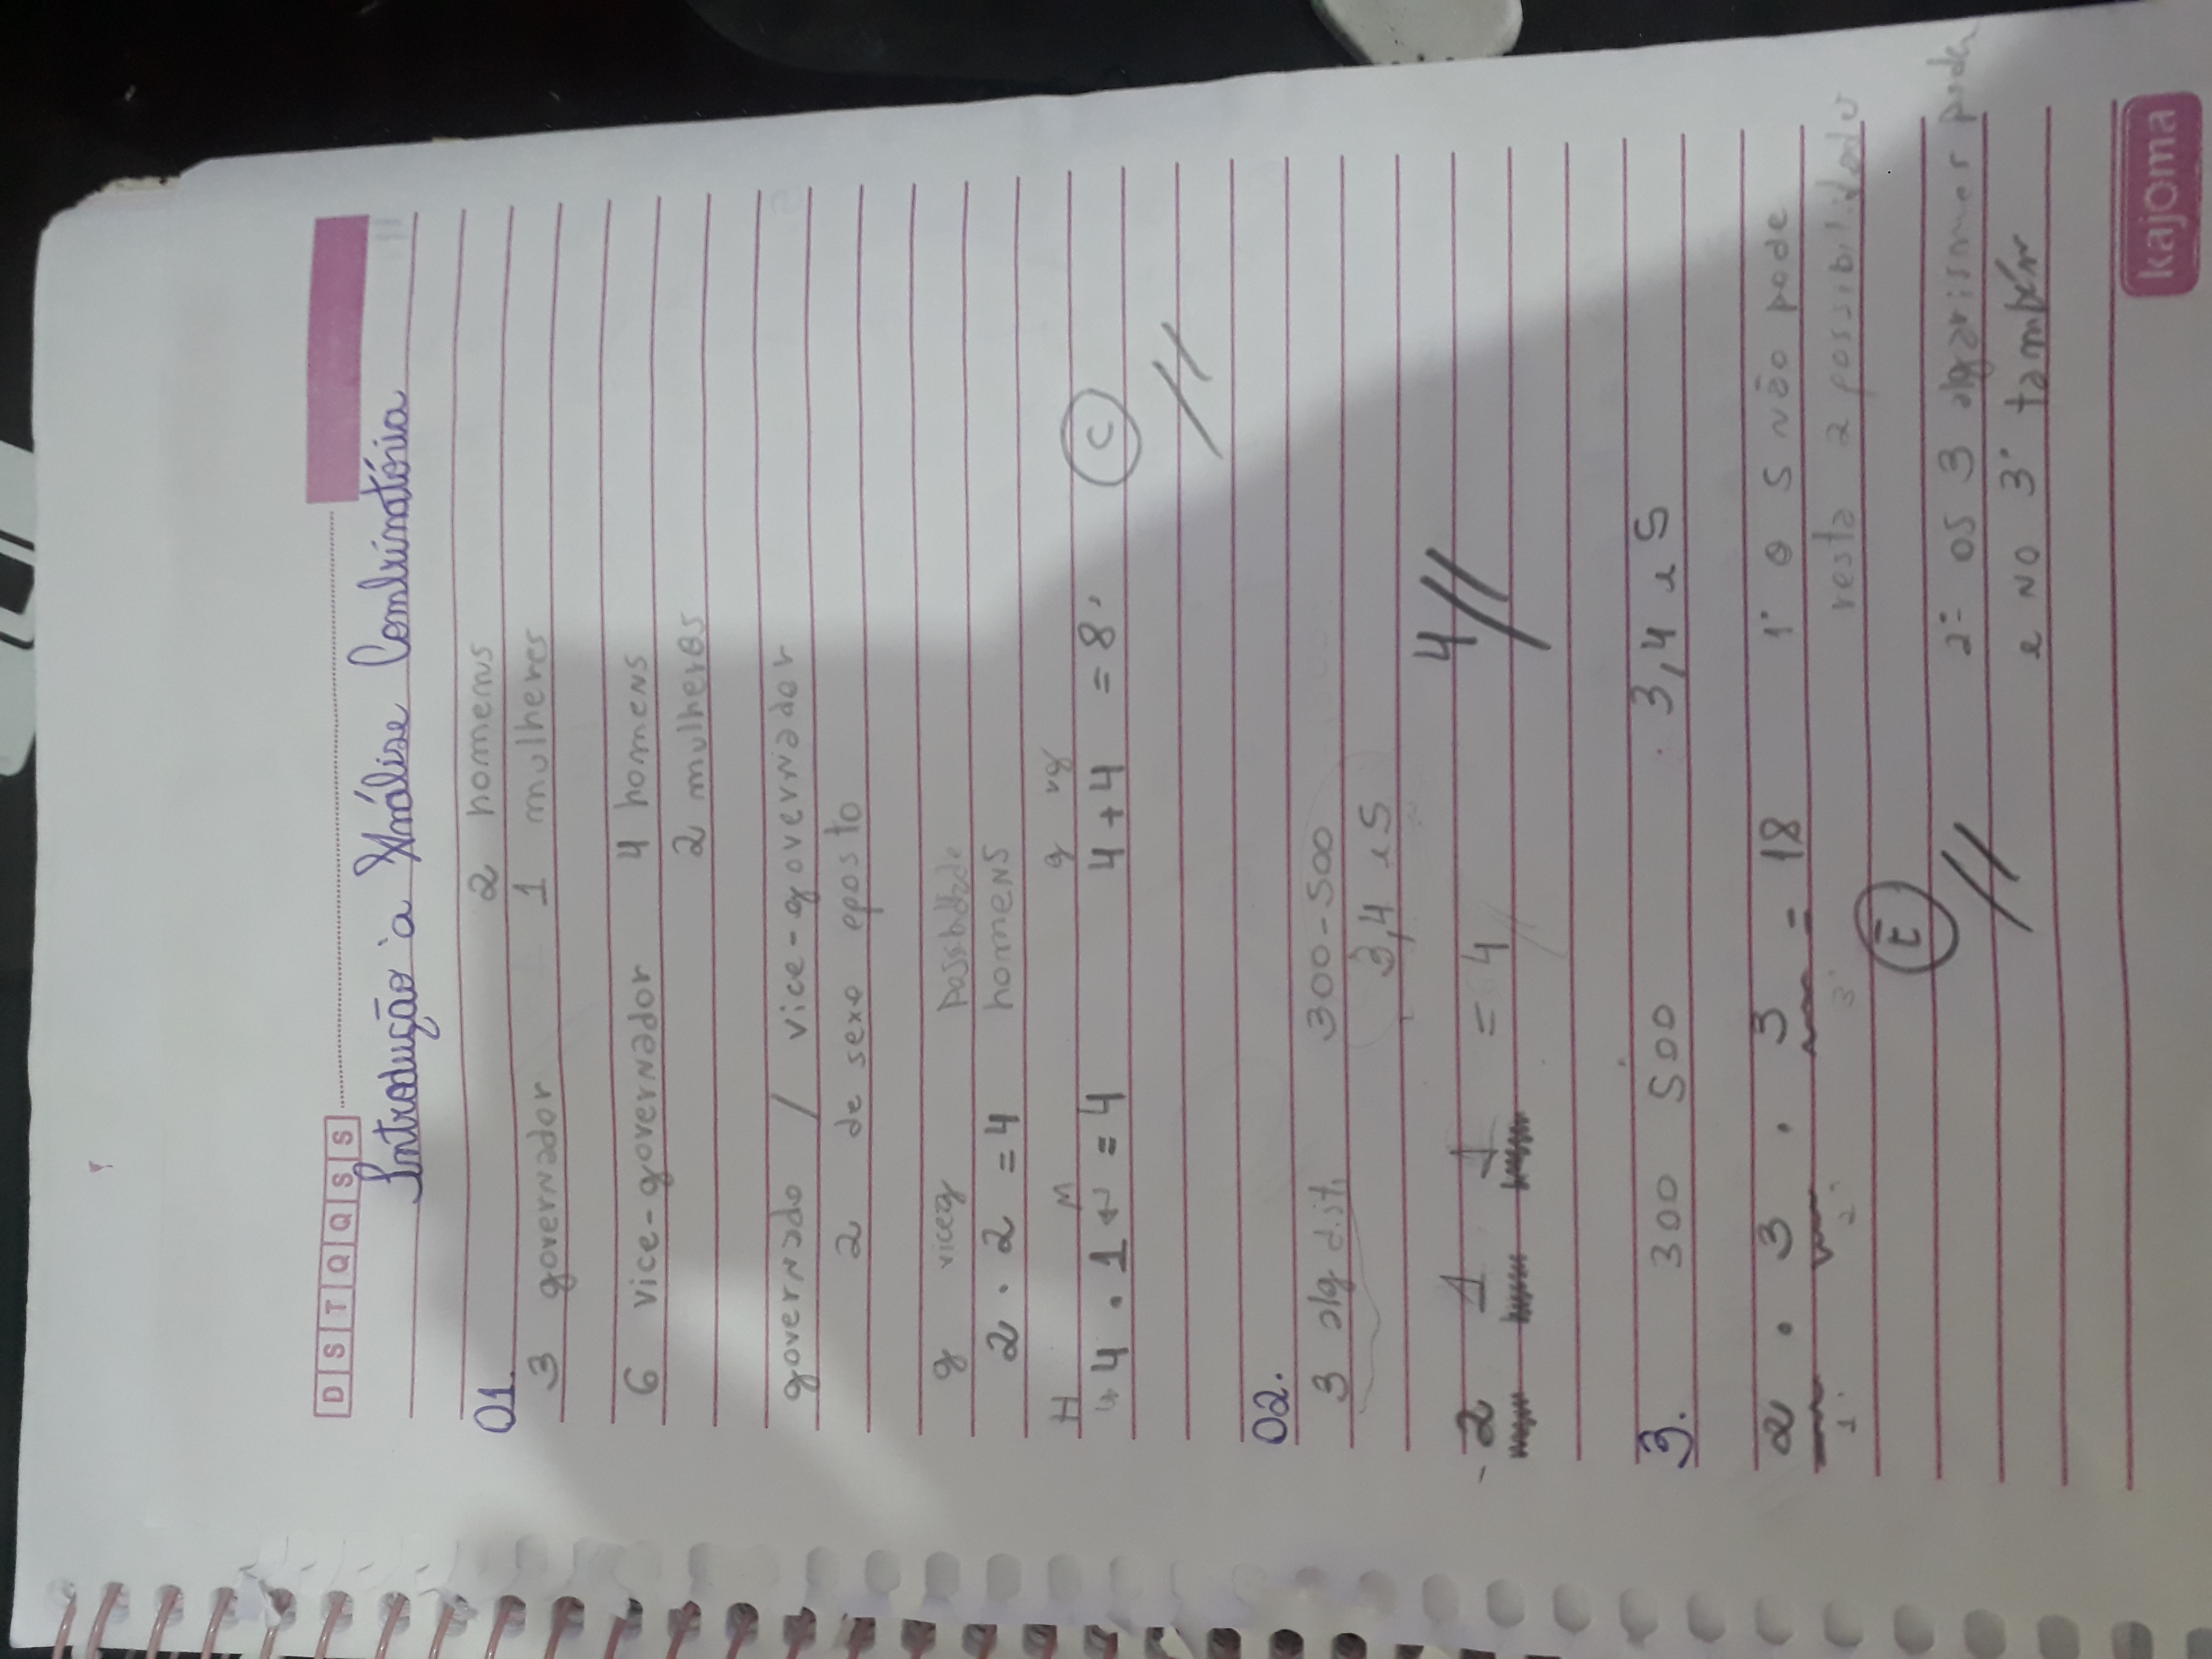 D S T Q Q S S
Introdução à Análise Combinatória
01.
2 homens
3 governador 1 mulheres
6 vice-governador 4 homens
2 mulheres
governado / vice-governador
2 de sexo eposto
g viceg
2 . 2 = 4 homens
H M g vg
4 . 1 = 4 4 + 4 = 8 C
02.
3 alg dist. 300-500
3,4 e 5
2 1 1 = 4 4
3. 300 500 3,4 e 5
2 . 3 . 3 = 18 1° o 5 não pode
1° 2° 3° resta 2 possibilidades
E
2° os 3 algarismos podem
e no 3° também
kajoma